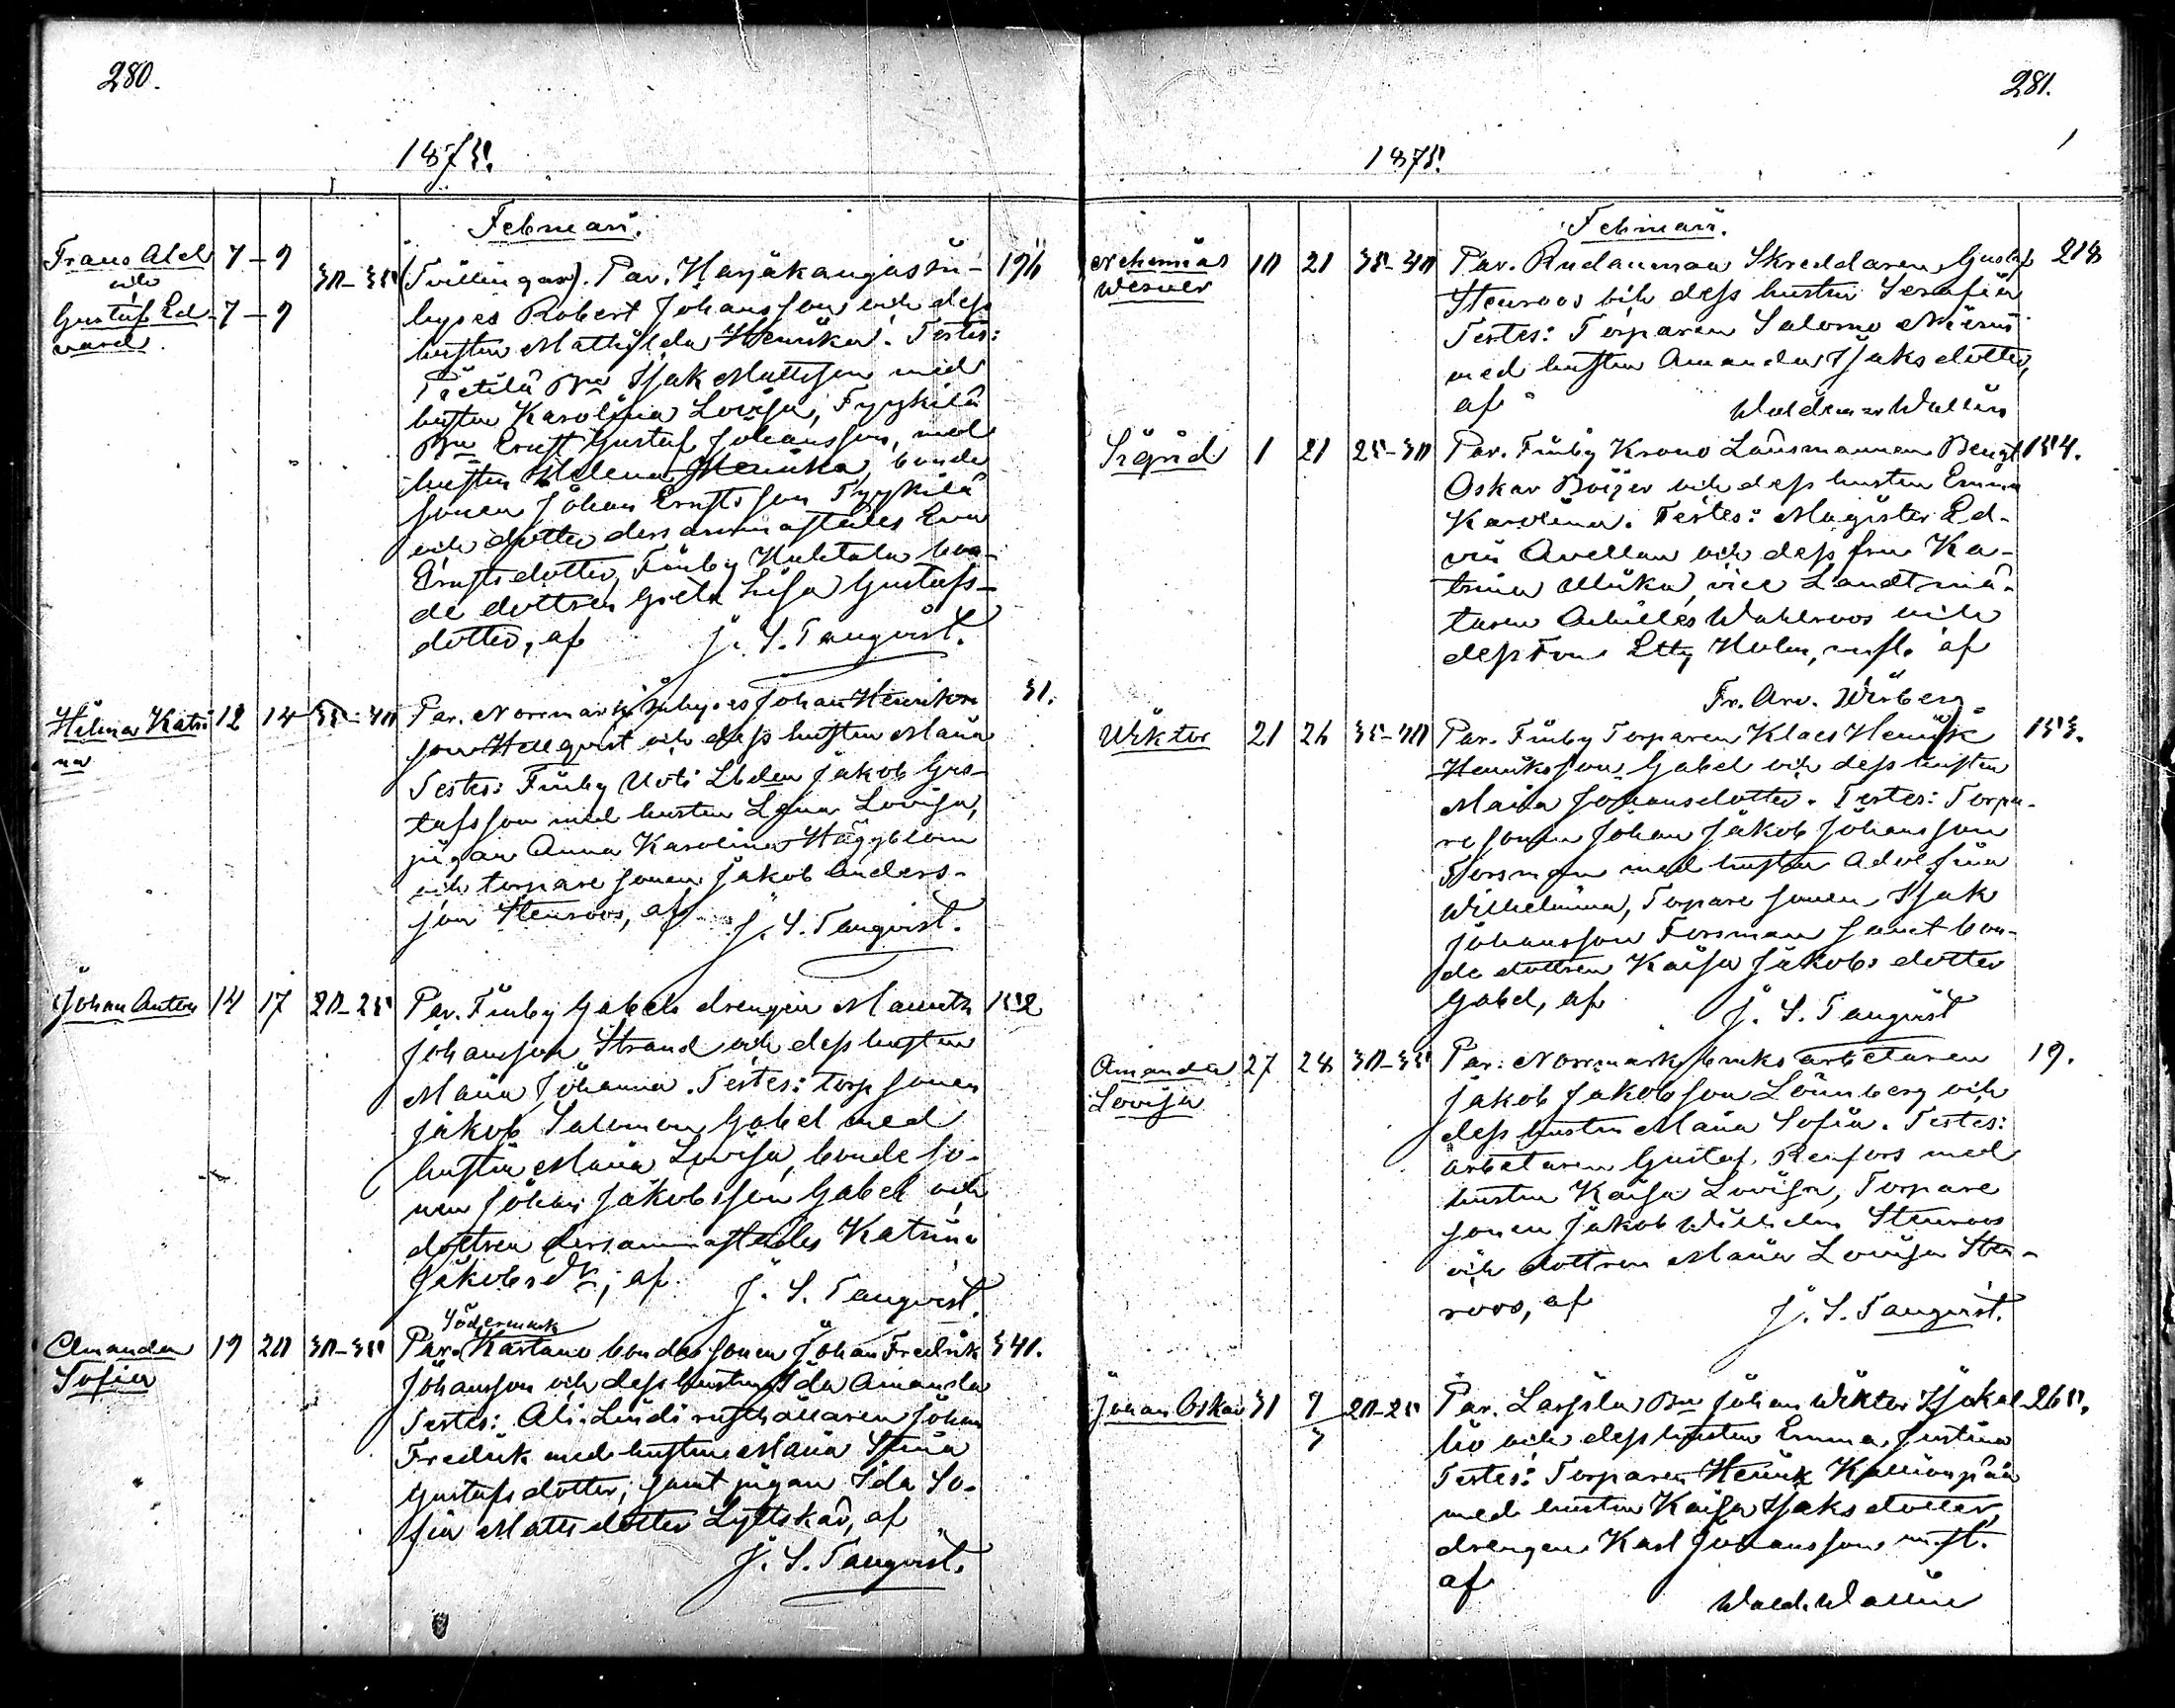 280.
1875.
Februari.
Frans Axel 7 - 9 30-35 (Tvillingar). Par. Harjakangas in- 196
och
Gustaf Ed- 7 - 9 hyses Robert Johansson och dess
vard. hustru Mathilda Henrika. Testes:
Pietilä Bn Isak Mattsson med
hustru Karolina Lovisa, Tyykilä
Bn Ernst Gustaf Johansson, med
hustru Helena Henrika, bonde
sonen Johan Ernstsson Tyykilä
och dotter dersammastädes Eva
Ernstsdotter, Finby Huhtala bon-
de dottren Greta Lisa Gustafs-
dotter, af J. S. Tanqvist.
Hilma Katri 12 14 35-40 Par. Norrmark inhyses Johan Henriks 31.
na son Hellqvist och dess hustru Maria
Testes: Finby Uoti Jakob Gus-
tafsson med hustru Lena Lovisa,
pigan Anna Karolina Häggblom
och torpare sonen Jakob Anders-
son Stenroos, af J. S. Tanqvist.
Johan Anton 14 17 20-25 Par. Finby Gabels drengen 152
Johansson Strand och dess hustru
Maria Johanna. Testes: torp sonen
Jakob Salomon Gabel med
hustru Maria Lovisa, bonde so-
nen Johan Jakobsson Gabel och
dottren dersammastädes Katrina
Jakobs dr, af J. S. Tanqvist.
Södermark
Amanda 19 20 30-35 Par. Kartano bondesonen Johan Fredrik 341.
Sofia Johansson och dess hustru Ida Amanda
Testes: Ali-Lindi rusthållaren Johan
Fredrik med hustru Maria Stina
Gustafsdotter, samt pigan Ida So-
fia Mattsdotter Lyttskär, af
J. S. Tanqvist.
281.
1875.
Februari.
Nehemias 10 21 35-40 Par. Rudanmaa Skreddaren Gustaf 218
Werner Stenroos och dess hustru Serafia
Testes: Torparen Salomo
med hustru Amanda Isaksdotter,
af Waldemar Wallin
Sigrid 1 21 25-30 Par. Finby Krono Länsmannen Bengt 154.
Oskar Böijer och dess hustru Emma
Karolina. Testes: Magister Ed-
vin Avellan och dess fru Ka-
trina Ulrika, vice Landtmä-
taren Achilles Wahlroos och
dess Fru Etty Holm, af
Fr. Arv. Wiberg.
Wiktor 21 26 35-40 Par. Finby Torparen Klaes Henrik 153.
Henriksson Gabel och dess hustru
Maria Johansdotter. Testes: Torpa-
re sonen Johan Jakob Johansson
Forsman med hustru Adolfina
Wilhelmina, Torpare sonen Isak
Johansson Forsman samt bon-
de dottren Kaisa Jakobs dotter
Gabel, af J. S. Tanqvist
Amanda 27 28 30-35 Par. Norrmark bruks arbetaren 19.
Lovisa Jakob Jakobsson Lönnberg och
dess hustru Maria Sofia. Testes:
arbetaren Gustaf Renfors med
hustru Kaisa Lovisa, Torpare
sonen Jakob Wilhelm Stenroos
och dottren Maria Lovisa Sten-
roos, af J. S. Tanqvist.
Johan Oskar 31 7/3 20-25 Par. Lassila Bn Johan Wiktor 265.
och dess hustru Emma Justina
Testes: Torparen Henrik Kallionpää
med hustru Kaisa Isaks dotter,
drengen Karl Johansson
af
Wald. Wallin